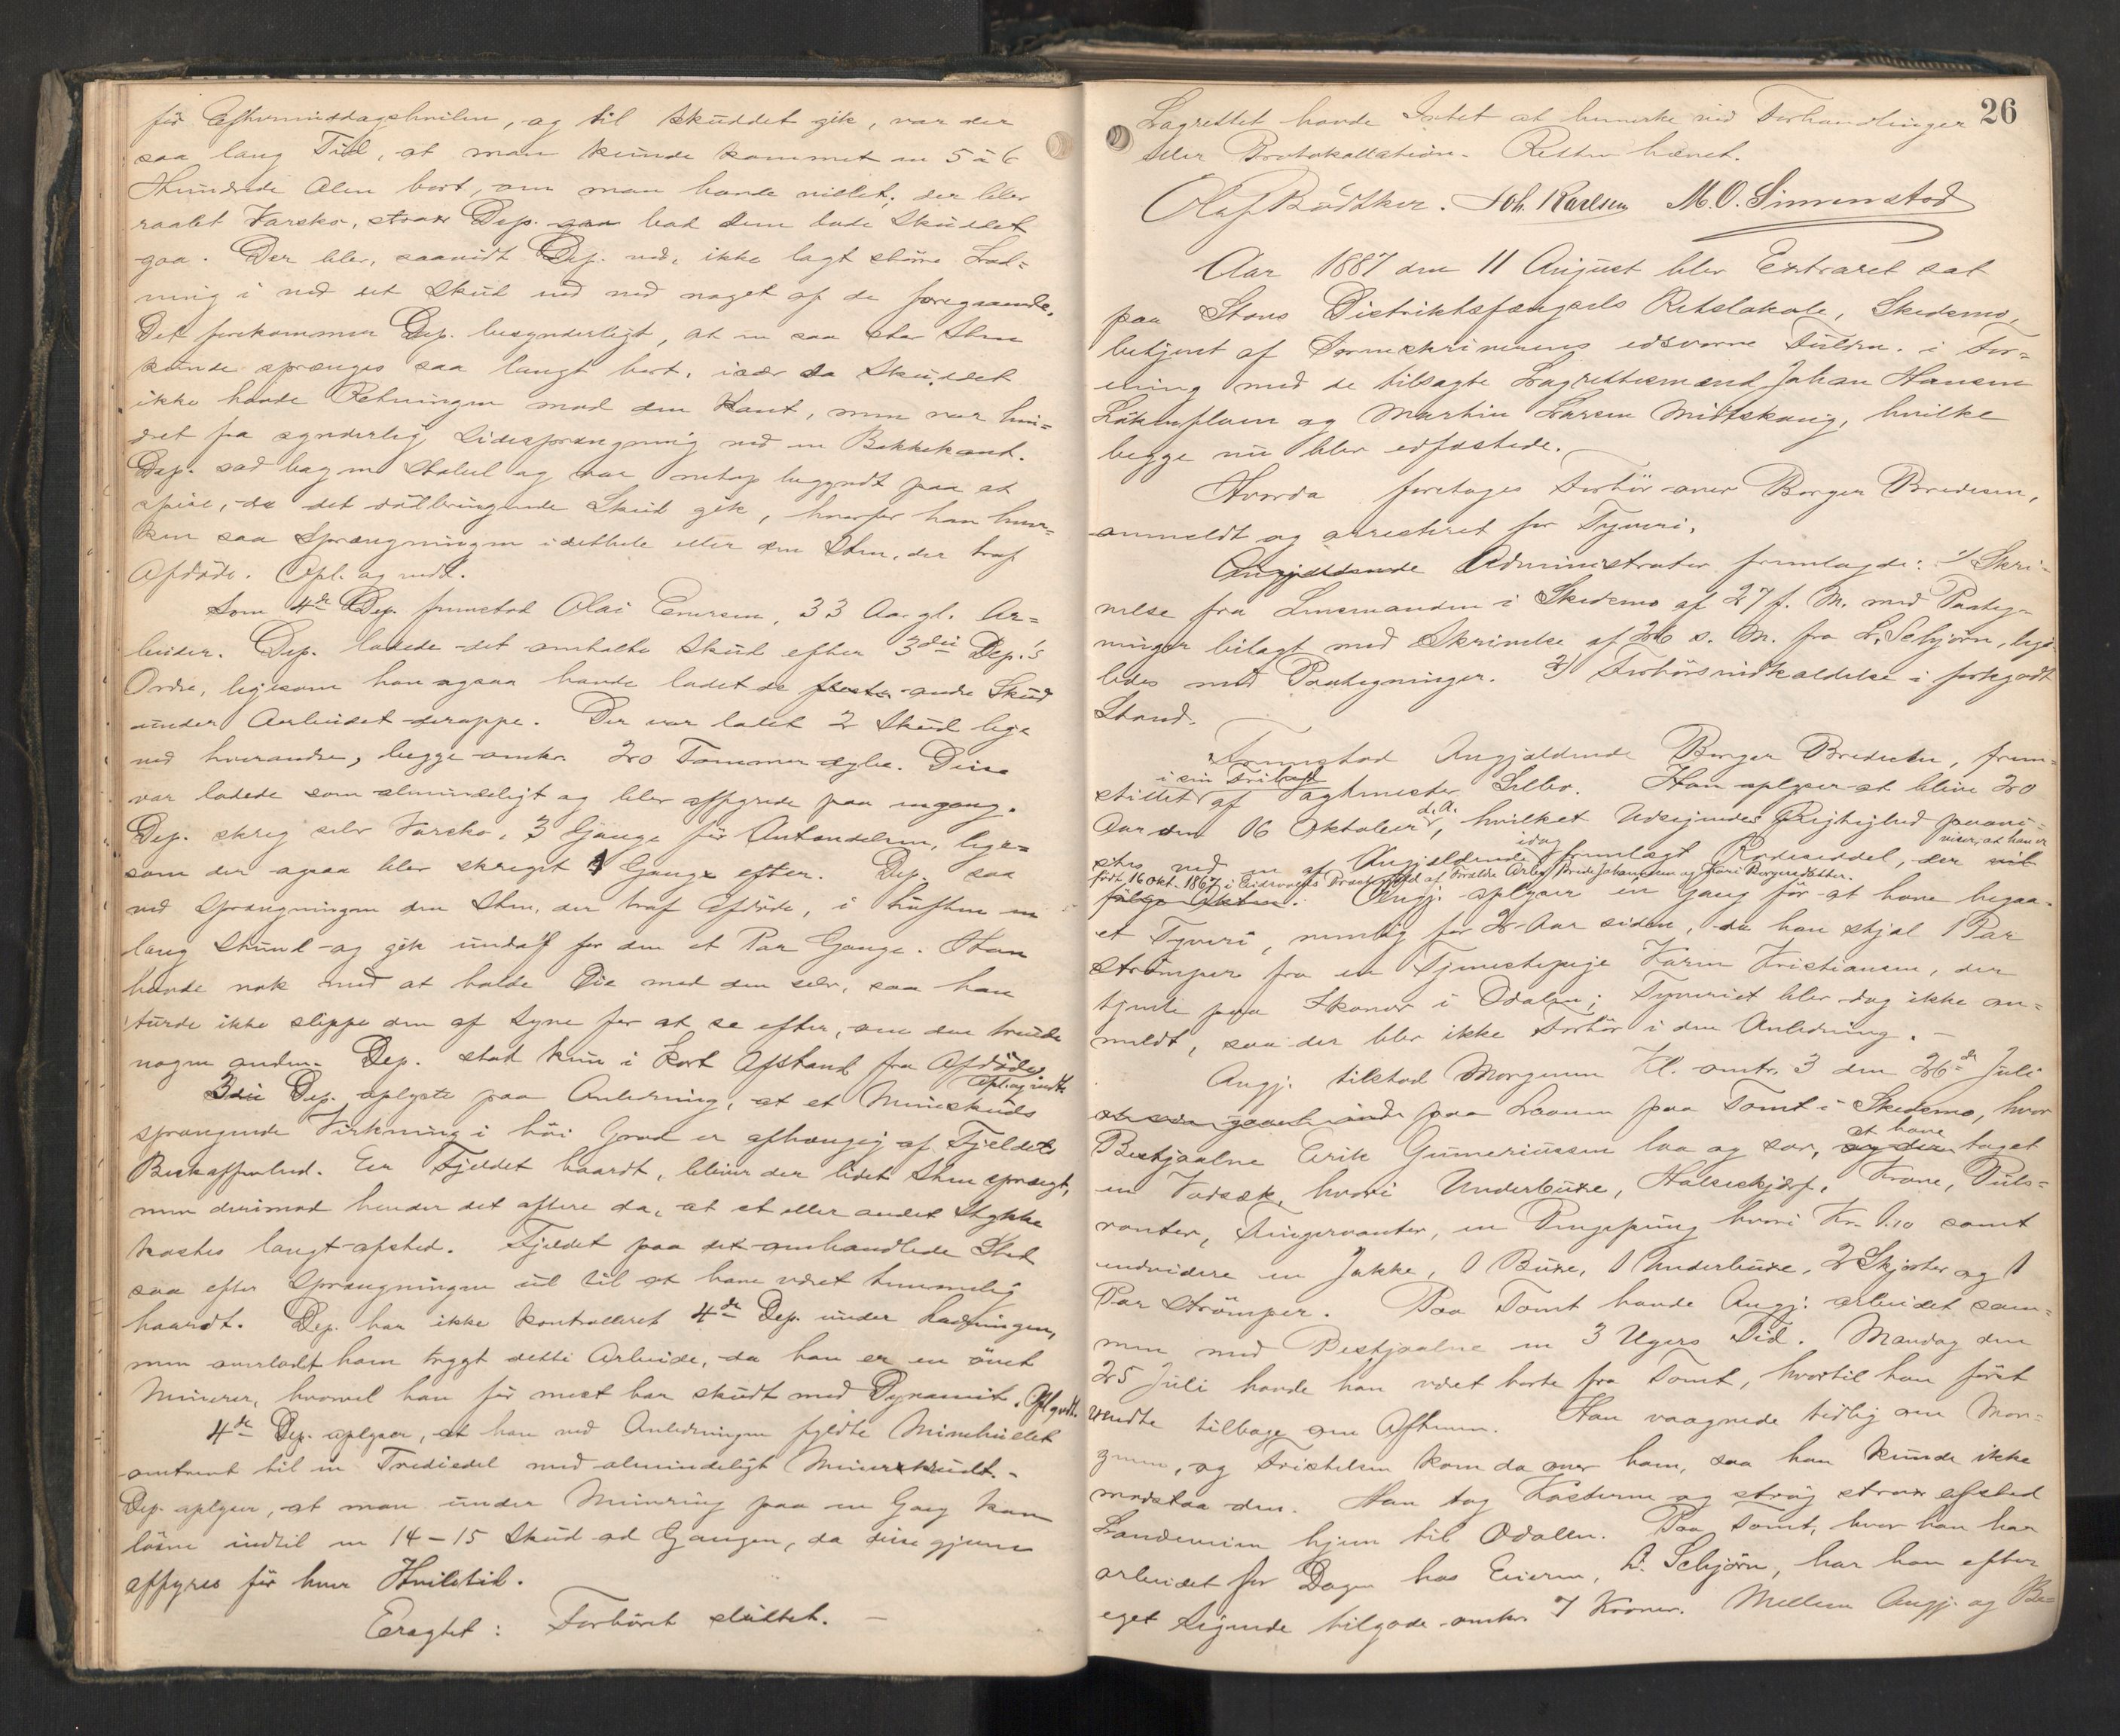 før Eftermiddagshvilen, og til Skuddet gik, var der
saa lang Tid, at man kunde kommet en 5 à 6
Hundrede Alen bort, om man havde villet; der blev
raabt Varsko, strax Dep. saa bad dem lade Skuddet
gaa. Der blev, saavidt Dep. ved, ikke lagt større Lad-
ning i ved det Skud end ved noget af de foregaaende.
Det forekommer Dep. besynderligt, at en saa stor Sten
kunde sprænges saa langt bort, især da Skuddet
ikke havde Retningen mod den Kant, men var hin-
dret fra synderlig Sidesprængning ved en Bakkekant.
Dep. sad bag en Stabel og var netop begyndt paa at
spise, da det dødbringende Skud gik, hvorfor han hver-
ken saa Sprængningen idethele eller den Sten, der traf
Afdøde. Opl. og vedt.
Som 4de Dep. fremstod Olai Enersen, 33 Aar gl. Ar-
beider. Dep. ladede det omtalte Skud efter 3die Dep.'s
Ordre, ligesom han ogsaa havde ladet de fleste andre Skud
under Arbeidet deroppe. Der var ladet 2 Skud lige
ved hverandre, begge omkr. 20 Tommer dybe. Disse
var ladede som almindeligt og blev affyrede paa engang.
Dep. skreg selv Varsko, 3 Gange før Antændelsen, lige-
som der ogsaa blev skreget 1 Gang efter. Dep. saa
ved Sprængningen den Sten, der traf Afdøde, i Luften en
lang Stund og gik undaf for den et Par Gange. Han
havde nok med at holde Øie med den selv, saa han
turde ikke slippe den af Syne for at se efter, om den truede
nogen anden. Dep. stod kun i kort Afstand fra Afdøde.
Opl. og vedt.
3die Dep. oplyste paa Anledning, at et Mineskuds
sprængende Virkning i høi Grad er afhængig af Fjeldets
Beskaffenhed. Er Fjeldet haardt, bliver der lidet Sten sprængt,
men derimod hender det oftere da, at et eller andet Stykke
kastes langt afsted. Fjeldet paa det omhandlede Sted
saa efter Sprængningen ud til at have været temmelig
haardt. Dep. har ikke kontrolleret 4de Dep. under Ladningen,
men overladt ham trygt dette Arbeide, da han er en øvet
Minerer, hvorvel han før mest har skudt med Dynamit. Opl. og vedt.
4de Dep. oplyser, at han ved Anledningen fyldte Minehullet
omtrent til en Trediedel med almindeligt Minerkrudt. -
Dep. oplyser, at man under Minering paa en Gang kan
løsne indtil en 14 - 15 Skud ad Gangen, da disse gjerne
affyres før hver Hviletid.
Eragtet: Forhøret sluttet. -
26
Lagrettet havde Intet at bemerke ved Forhandlingen
eller Protokollation. Retten hævet.
Olaf Bødtker. Joh. Karlsen M. O. Simenstad
Aar 1887 den 11 August blev Extraret sat
paa Skons Distriktsfængsels Retslokale, Skedsmo,
betjent af Sorenskriverens edsvorne Fuldm. i For-
ening med de tilsagte Lagrettesmænd Johan Hansen
Løkenfloen og Martin Larsen Midtskoug, hvilke
begge nu blev edfæstede.
Hvorda foretoges Forhør over Borger Bredesen,
anmeldt og arresteret for Tyveri.
Angjældende Administrator fremlagde: 1) Skri-
velse fra Lensmanden i Skedsmo af 27 f. M. med Paateg-
ninger bilagt med Skrivelse af 26 s. M. fra L. Schjørn, lige-
ledes med Paategninger. 2) Forhørsindkaldelse i forkyndt
Stand.
Fremstod Angjældende Borger Bredesen, frem-
i sin Frihed
stillet af Vagtmester Lilleo. Han oplyser at blive 20
d. A.
Aar den 16 Oktober, hvilket Udsigendes Rigtighed paavi-
idag
viser, at han er
stes ved en af Angjældende fremlagt Rodeseddel, der vil
født 16 Okt. 1867 i Eidsvolds Præstegjeld af Forældre Arbeider Brede Johannesen og Kari Borgersdatter.
følge Akten. Angj. oplyser en Gang før at have begaa-
et Tyveri, nemlig for 2 Aar siden, da han stjal 1 Par
Strømper fra en Tjenestepige Karen Kristiansen, der
tjente paa Skonor i Odalen; Tyveriet blev dog ikke an-
meldt, saa der blev ikke Forhør i den Anledning. -
Angj. tilstod Morgenen Kl. omtr. 3 den 26de Juli
paa Laaven paa Tomt i Skedsmo, hvor
at have
Bestjaalne Erik Gumeriussen laa og sov, og der taget
en Vadsæk, hvori Underbuxe, Halsskjærf, Krave, Puls-
vanter, Fingervanter, en Pengepung hvori Kr. 1.10 samt
endvidere en Jakke, 1 Buxe, 1 Underbuxe, 2 Skjorter og 1
Par Strømper. Paa Tomt havde Angj. arbeidet sam-
men med Bestjaalne en 3 Ugers Tid. Mandag den
25 Juli havde han været borte fra Tomt, hvortil han først
vendte tilbage om Aftenen. Han vaagnede tidlig om Mor-
genen, og Fristelsen kom da over ham, saa han kunde ikke
modstaa den. Han tog Kosterne og strøg strax afsted
Landeveien hjem til Odalen. Paa Tomt, hvor han har
arbeidet for Dagen hos Eieren, L. Schjørn, har han efter
eget Sigende tilgode omkr. 7 Kroner. Mellem Angj. og Be-